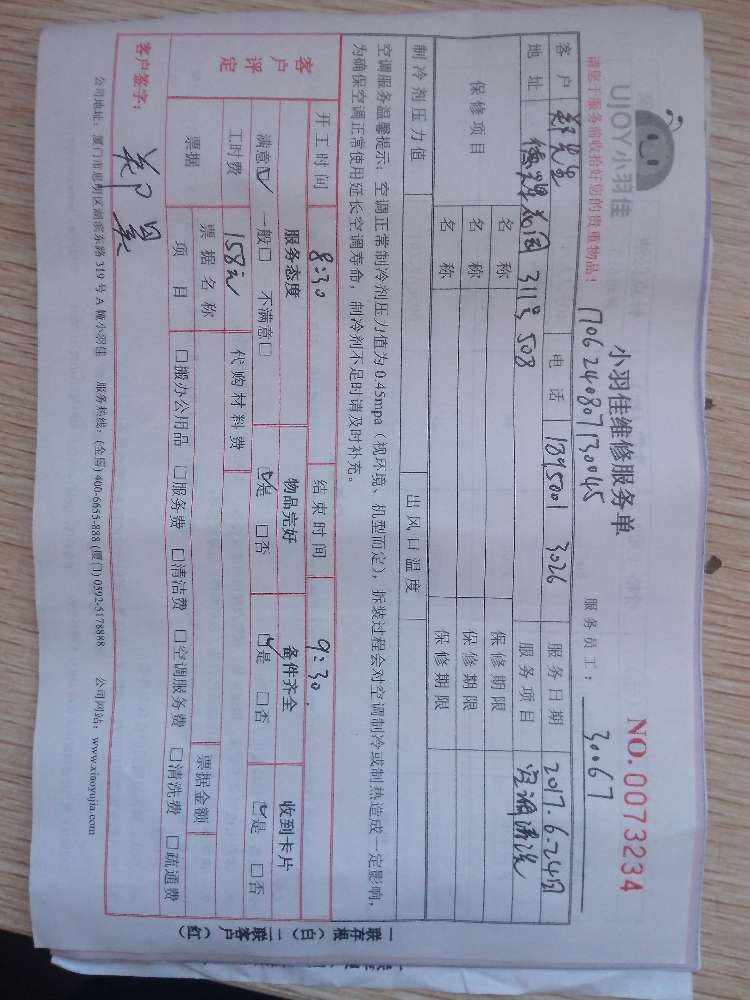 UJOY小羽佳
小羽佳维修服务单
NO.0073234
请您于服务前收拾好您的贵重物品!
1706240807130045
服务员工: 30067
客户 郑先生 电话 1395001 3026 服务日期 2017.6.24日
地址 311号508 服务项目 空调清洗
保修项目 名称 保修期限
名称 保修期限
名称 保修期限
制冷剂压力值 出风口温度
空调服务温馨提示:空调正常制冷剂压力值为0.45mpa(视环境、机型而定),拆装过程会对空调制冷或制热造成一定影响,
为确保空调正常使用延长空调寿命,制冷剂不足时请及时补充。
客户评定
开工时间 8:30 结束时间 9:30.
服务态度 物品完好 备件齐全 收到卡片
满意☑ 一般□ 不满意□ ☑是 □否 ☑是 □否 ☑是 □否
工时费 158元 代购材料费
票据 票据名称 票据金额
项目 □搬办公用品 □服务费 □清洁费 □空调服务费 □清洗费 □疏通费
客户签字:
公司地址:厦门市思明区湖滨东路319号A幢小羽佳 服务热线:(全国)400-6655-888 (厦门)0592-5178888 公司网站:www.xiaoyujia.com
一联存根(白) 二联客户(红)